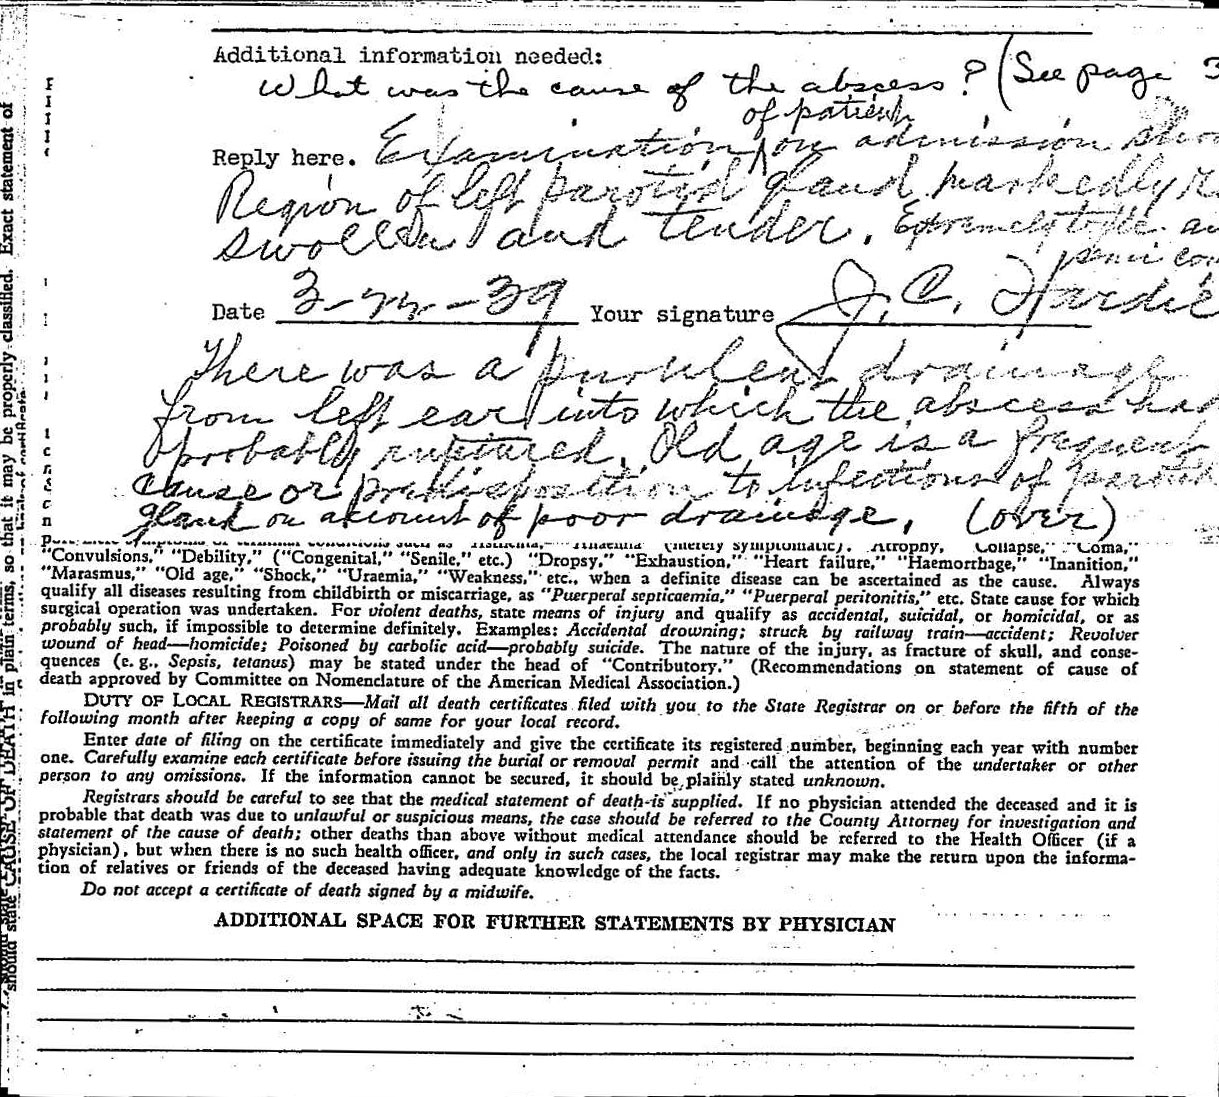 Additional information needed:
What was the cause of the abscess? (See page 3
of patient
Reply here. Examination on admission
Region of left parotid gland markedly
swollen and tender. Extremely toxic
semi
Date 3-22-39 Your signature J. C. Hardie
There was a purulent drainage
from left ear into which the abscess had
probably ruptured. Old age is a frequent
cause or predisposition to infections of parotid
gland on account of poor drainage. (over)
"Convulsions," "Debility," ("Congenital," "Senile," etc.) "Dropsy," "Exhaustion," "Heart failure," "Haemorrhage," "Inanition,"
"Marasmus," "Old age," "Shock," "Uraemia," "Weakness," etc., when a definite disease can be ascertained as the cause. Always
qualify all diseases resulting from childbirth or miscarriage, as "Puerperal septicaemia," "Puerperal peritonitis," etc. State cause for which
surgical operation was undertaken. For violent deaths, state means of injury and qualify as accidental, suicidal, or homicidal, or as
probably such, if impossible to determine definitely. Examples: Accidental drowning; struck by railway train—accident; Revolver
wound of head—homicide; Poisoned by carbolic acid—probably suicide. The nature of the injury, as fracture of skull, and conse-
quences (e. g., Sepsis, tetanus) may be stated under the head of "Contributory." (Recommendations on statement of cause of
death approved by Committee on Nomenclature of the American Medical Association.)
DUTY OF LOCAL REGISTRARS—Mail all death certificates filed with you to the State Registrar on or before the fifth of the
following month after keeping a copy of same for your local record.
Enter date of filing on the certificate immediately and give the certificate its registered number, beginning each year with number
one. Carefully examine each certificate before issuing the burial or removal permit and call the attention of the undertaker or other
person to any omissions. If the information cannot be secured, it should be plainly stated unknown.
Registrars should be careful to see that the medical statement of death is supplied. If no physician attended the deceased and it is
probable that death was due to unlawful or suspicious means, the case should be referred to the County Attorney for investigation and
statement of the cause of death; other deaths than above without medical attendance should be referred to the Health Officer (if a
physician), but when there is no such health officer, and only in such cases, the local registrar may make the return upon the informa-
tion of relatives or friends of the deceased having adequate knowledge of the facts.
Do not accept a certificate of death signed by a midwife.
ADDITIONAL SPACE FOR FURTHER STATEMENTS BY PHYSICIAN
should state CAUSE OF DEATH in plain terms, so that it may be properly classified. Exact statement of